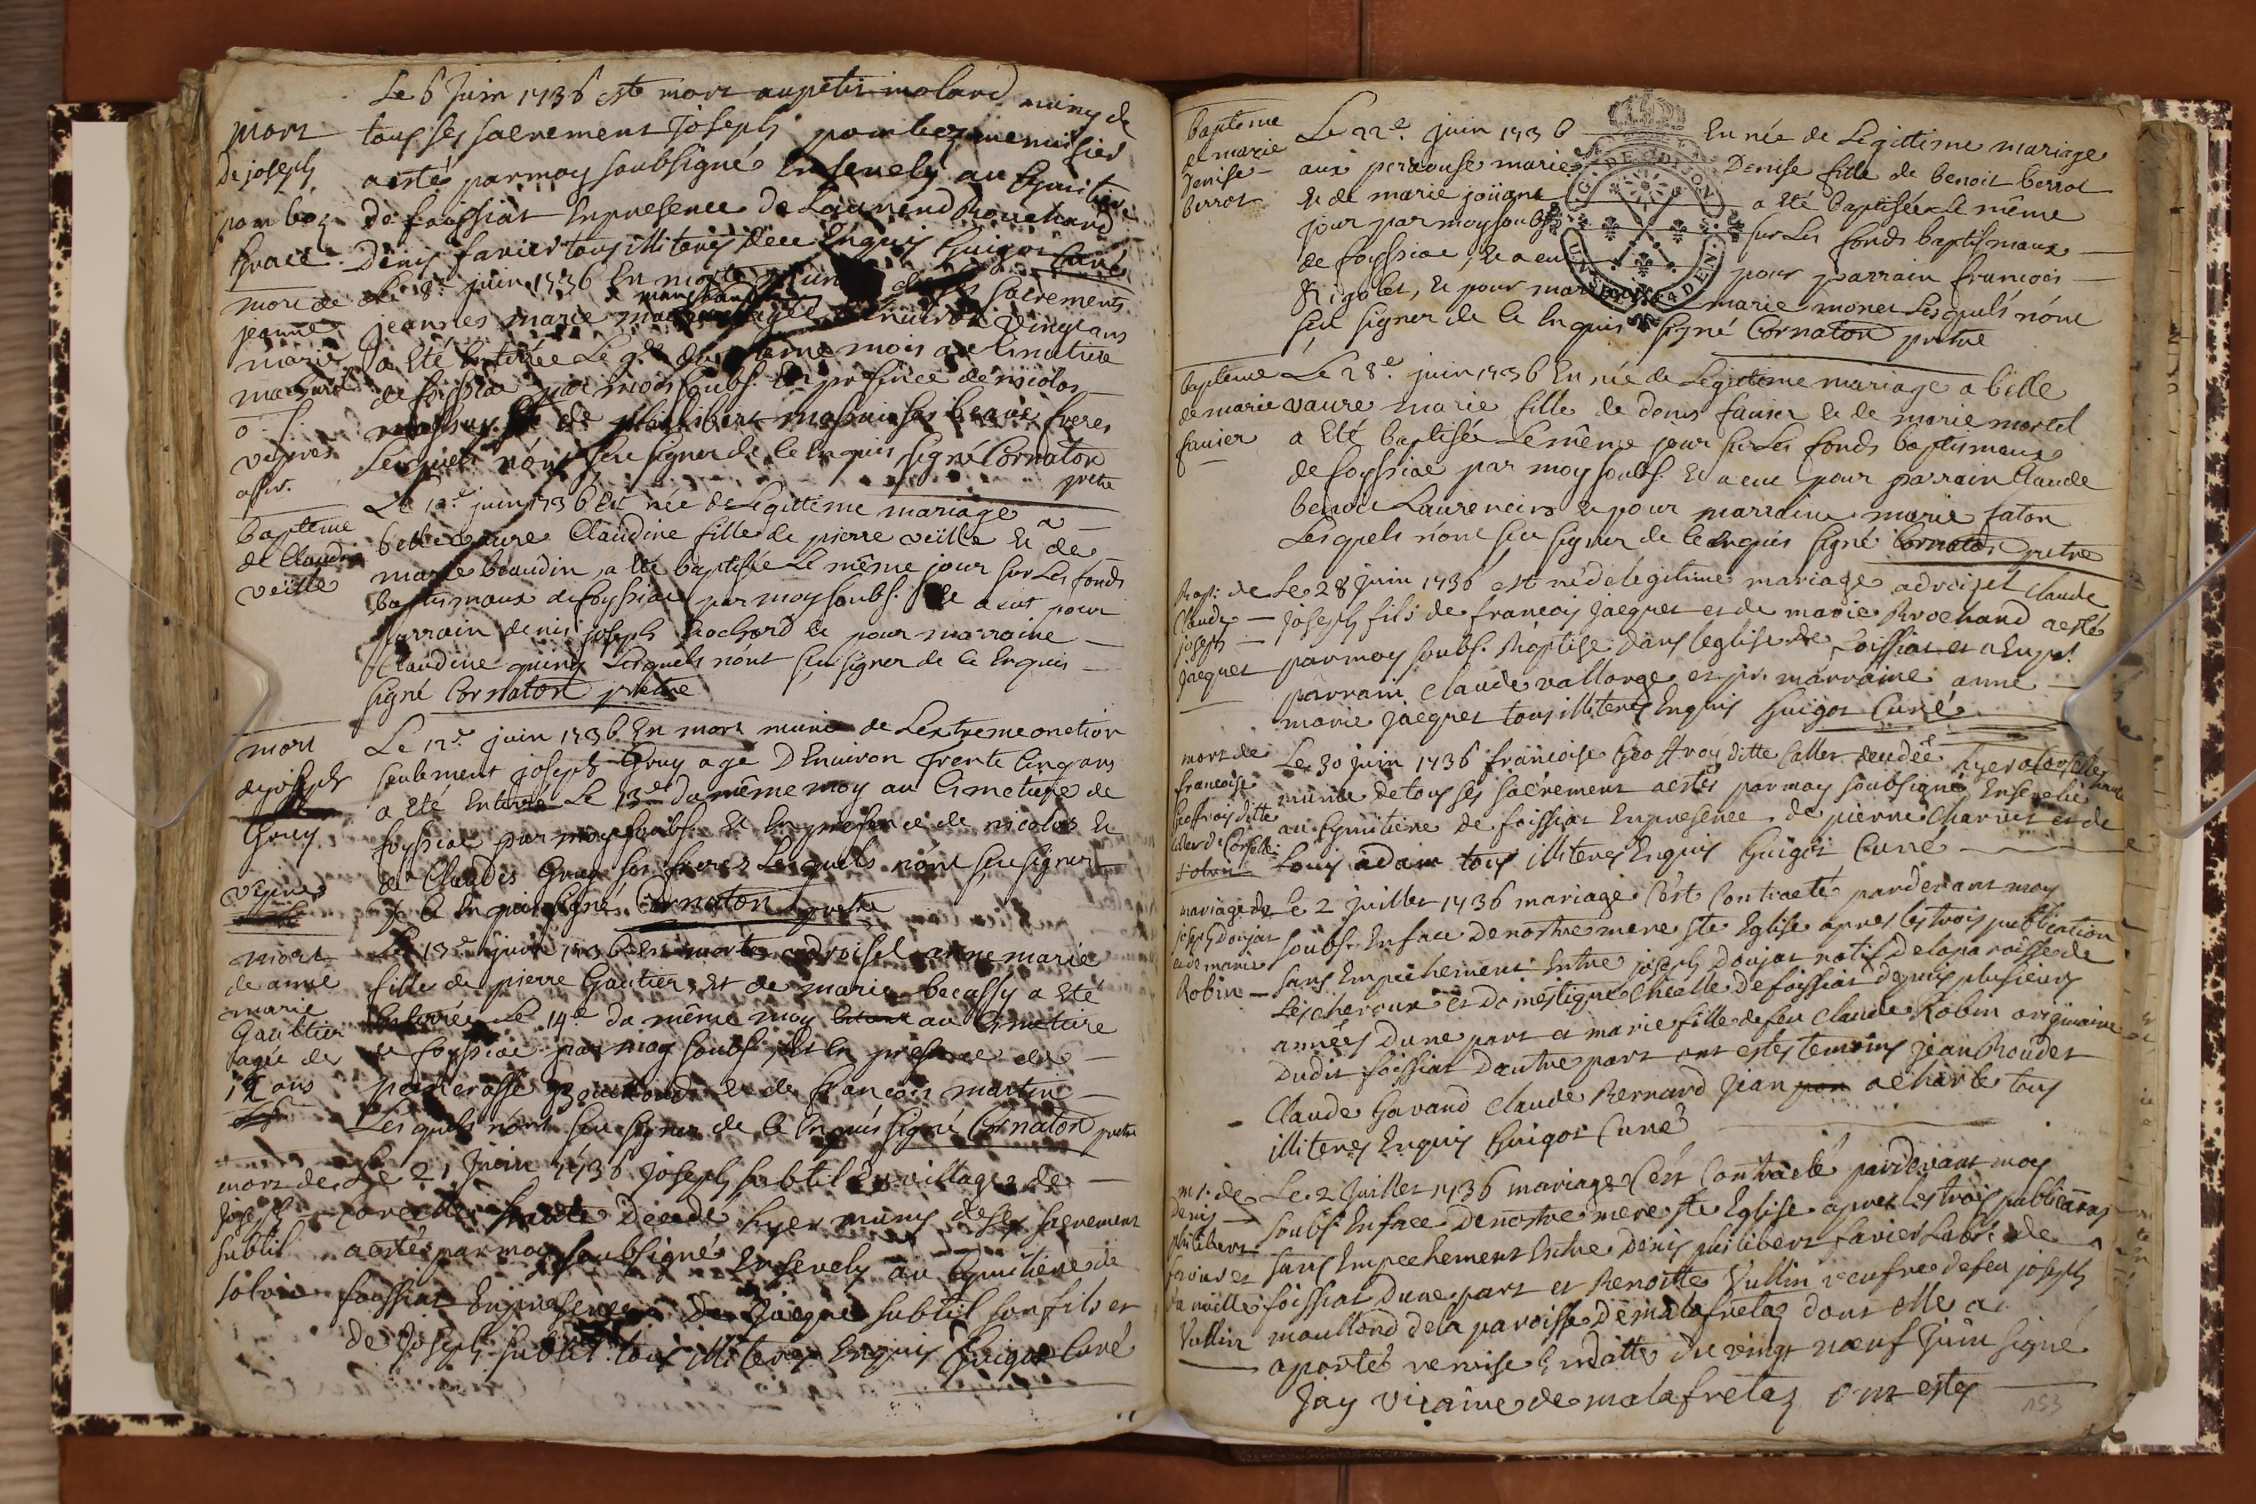 Le 6 Juin 1736 est mort au petit molard muny de
mort
de joseph
pomboz
grace
tous ses sacrement Joseph pomboz menuisier
a esté par moy soubsigné Ensevely au Cymitiere
de foissiat En presence de Laurend Bouchard
Denis favier tous illiteres Enquis Guigot Curé
mort de
jeanne
marie
o. f.
vepres
Le 8e juin 1736 En morte munie des sacrements
jeannes marie agée d'Environ vingt ans
a Eté Enterée Le 9e du même mois au Cimetiere
de foissiac par moy soubs. En presence de nicolas
et de philibert ses beaux freres
Lesquels n'ont sceu signer de ce Enquis signé Cornaton
pretre
bapteme
de Claudine
veille
Le 12e juin 1736 Est née de Legittime mariage a
belle vaure Claudine fille de pierre veille & de
marie beaudin, a Eté baptisée Le même jour sur Les fonds
baptismaux de foyssiac par moy soubs. & a eut pour
parrain denis joseph Rochard & pour marraine
Claudine quiny Lesquels n'ont sceu signer de ce Enquis
signé Cornaton pretre
mort
de joseph
Gruy
vepres
Le 12e juin 1736 En mort munie de Lextremeonction
seulement joseph Gruy age D'Environ trente Cinq ans
a Eté Enterré Le 13e du même moy au Cimetiere de
foyssiac par moy soubs. & En presence de nicolas &
de Claudes Gruy ses freres Lesquels n'ont sceu signer
de ce Enquis signé Cornaton pretre
mort
de anne
marie
Gaultier
agée de
ans
Le 13e juin 1736 En morte a droisel anne marie
fille de pierre Gautier, et de marie becassy a Eté
Enterrée Le 14e du même moy au Cimetiere
de foyssiac par moy soubs. Et En presence de
& de françois martin
Lesquels n'ont sceu signer de ce Enquis signé Cornaton pretre
mort de
Joseph
subtil
solvit
Le 21 Juin 1736 Joseph subtil du village de
decedé hyer muny de ses sacrement
a esté par moy soubsigné Ensevely au Cymitiere de
foissiat En presence de Jacque subtil son fils et
de Joseph subtil tous illiteres Enquis Guigot Curé
baptême
de marie
Denise
berrot
Le 22e juin 1736 En née de Legittime mariage
aux perrouse marie Denise fille de benoit berrot
& de marie joüant a été baptisée Le même
jour par moy soubs. sur Les fonds baptismaux
de foyssiac, & a eu pour parrain francois
Rigolet, & pour marraine marie monet Lesquels n'ont
sceu signer de ce Enquis signé Cornaton pretre
G. DE DIJON
baptême
de marie
favier
Le 28e juin 1736 En née de Legittime mariage a belle
vaure marie fille de denis favier & de marie mortel
a Eté baptisée Le même jour sur Les fonds baptismaux
de foyssiac par moy soubs. & a eue pour parrain Claude
benoit Laurencin & pour marraine marie faton
Lesquels n'ont sceu signer de ce Enquis signé Cornaton pretre
Bapt. de
Claude
joseph
jacquet
Le 28 Juin 1736 est né de legitime mariage a droizel Claude
Joseph fils de francois Jacquet et de marie Brochand a esté
par moy soubs. Baptisé dans leglise de foissiat et a Eu pr.
parrain Claude vallorge et pr. marraine anne
marie jacquet tous illiteres Enquis Guigot Curé
mort de
francoise
Geoffroy ditte
solvit
Le 30 Juin 1736 francoise Geoffroy ditte Caller decedée hyer
munie de tous ses sacrement a esté par moy soubsigné Ensevelie
au Cymitiere de foissiat En presence de pierre Charvet et de
Louis adam tous illiteres Enquis Guigot Curé
mariage de
joseph doujat
et de marie
Robin
Le 2 Juillet 1736 mariage C'est Contracté pardevant moy
soubs. En face De nostre mere Ste Eglise apres les trois publication
sans Empechement Entre joseph doujat natif de la paroisse de
Lescheroux et Domestique a foissiat depuis plusieurs
années dune part et marie fille de feu Claude Robin originaire
dudit foissiat Dautre part ont estes temoins Jean Roudet
Claude Gavand Claude Bernard Jean acharle tous
illiteres Enquis Guigot Curé
m. de
Denis
philibert
favier et
benoitte
Vullin
Le 2 Juillet 1736 mariage C'est Contracté pardevant moy
soubs. En face De nostre mere Ste Eglise apres les trois publications
sans Empechement Entre Denis philibert favier Labr. de
foissiat Dune part et Benoitte Vullin veufve de feu joseph
moulland de la paroisse De malafretaz dont elle a
aporté remise En datte du vingt neuf Juin signé
Jay vicaire de malafretaz ont estes
153